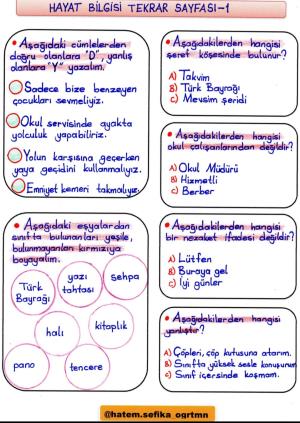 HAYAT BİLGİSİ TEKRAR SAYFASI-1
• Aşağıdaki cümlelerden
doğru olanlara "D", yanlış
olanlara "Y" yazalım.
Sadece bize benzeyen
çocukları sevmeliyiz.
Okul servisinde ayakta
yolculuk yapabiliriz.
Yolun karşısına geçerken
yaya geçidini kullanmalıyız.
Emniyet kemeri takmalıyız.
• Aşağıdaki eşyalardan
sınıfta bulunanları yeşile,
bulunmayanları kırmızıya
boyayalım.
Türk
Bayrağı
yazı
tahtası
sehpa
halı
kitaplık
pano
tencere
Aşağıdakilerden hangisi
şeref köşesinde bulunur?
A) Takvim
B) Türk Bayrağı
C) Mevsim şeridi
• Aşağıdakilerden hangisi
okul çalışanlarından değildir?
A) Okul Müdürü
B) Hizmetli
C) Berber
• Aşağıdakilerden hangisi
bir nezaket ifadesi değildir?
A) Lütfen
B) Buraya gel
C) İyi günler
• Aşağıdakilerden hangisi
yanlıştır?
A) Çöpleri, çöp kutusuna atarım.
B) Sınıfta yüksek sesle konuşurum.
C) Sınıf içerisinde koşmam.
@hatem.sefika_ogrtmn